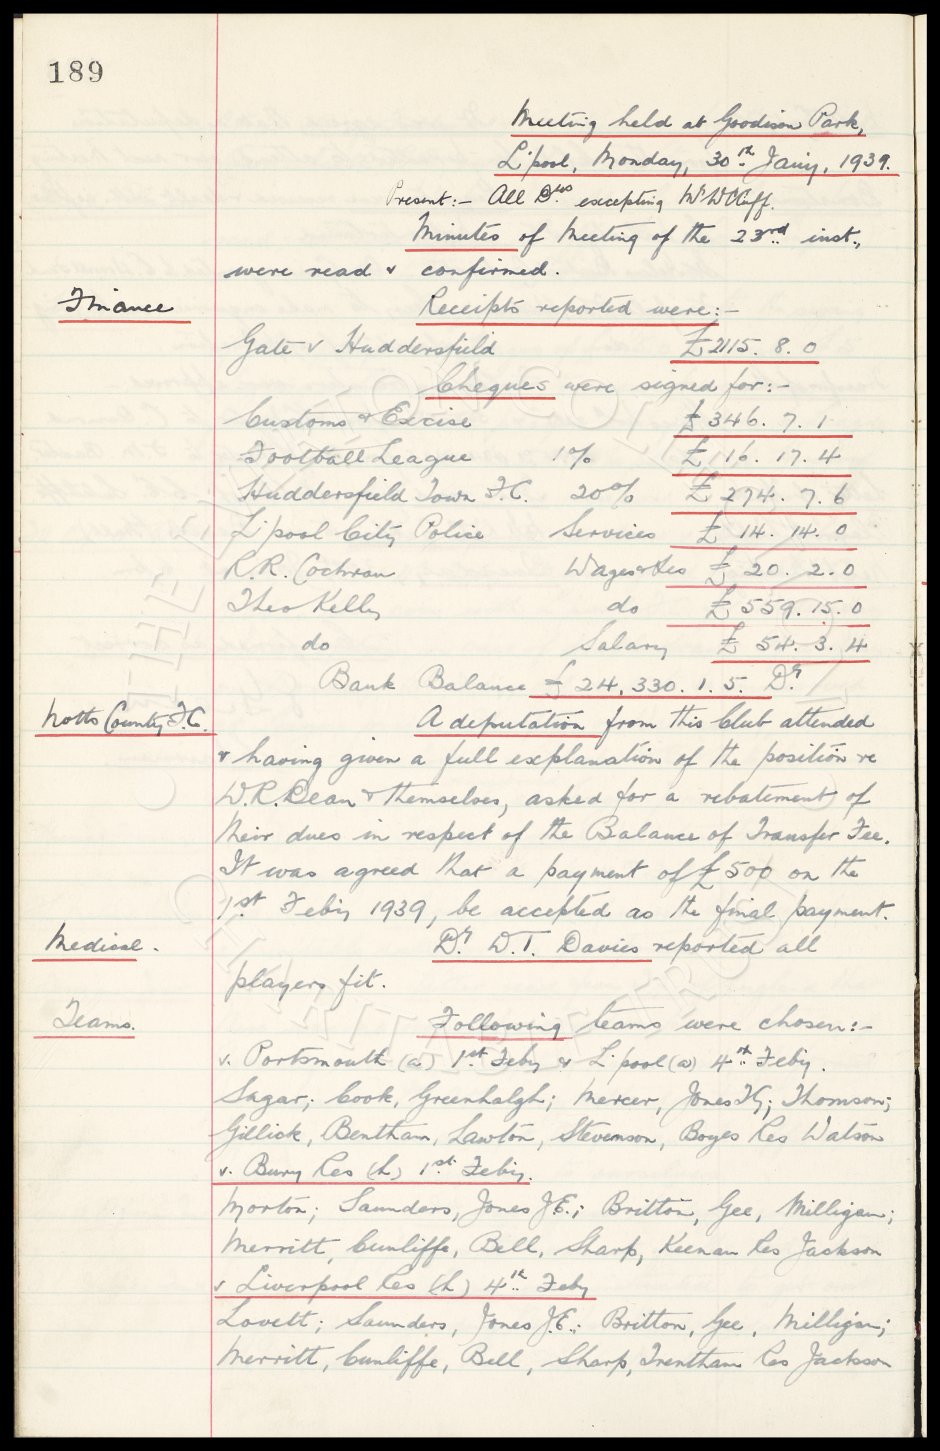 189
Meeting held at Goodison Park,
L'pool, Monday, 30th Jan'y, 1939.
Present:- All Drs excepting Mr W C Cuff.
Minutes of Meeting of the 23rd inst.,
were read & confirmed.
Finance
Receipts reported were:-
Gate v Huddersfield £2115. 8. 0
Cheques were signed for:-
Customs & Excise £346. 7. 1
Football League 1% £ 16. 17. 4
Huddersfield Town F.C. 20% £ 274. 7. 6
L'pool City Police Services £ 14. 14. 0
R.R. Cochran Wages&Xes £ 20. 2. 0
Theo Kelly do £559. 15. 0
do Salary £ 54. 3. 4
Bank Balance £ 24,330. 1. 5. Dr
Notts County F.C. A deputation from this Club attended
& having given a full explanation of the position re
W.R. Dean & themselves, asked for a rebatement of
their dues in respect of the Balance of Transfer Fee.
It was agreed that a payment of £500 on the
1st Feb'y 1939, be accepted as the final payment.
Medical. Dr. W.T. Davies reported all
players fit.
Teams. Following teams were chosen:-
v. Portsmouth (a) 1st Feby & L'pool (a) 4th Feb'y.
Sagar; Cook, Greenhalgh; Mercer, Jones TG; Thomson;
Gillick, Bentham, Lawton, Stevenson, Boyes Res Watson
v. Bury Res (h) 1st Feb'y.
Morton; Saunders, Jones J.E.; Britton, Gee, Milligan;
Merritt, Cunliffe, Bell, Sharp, Keenan Res Jackson
v Liverpool Res (h) 4th Feby
Lovett; Saunders, Jones J.E.; Britton, Gee, Milligan;
Merritt, Cunliffe, Bell, Sharp, Trentham Res Jackson